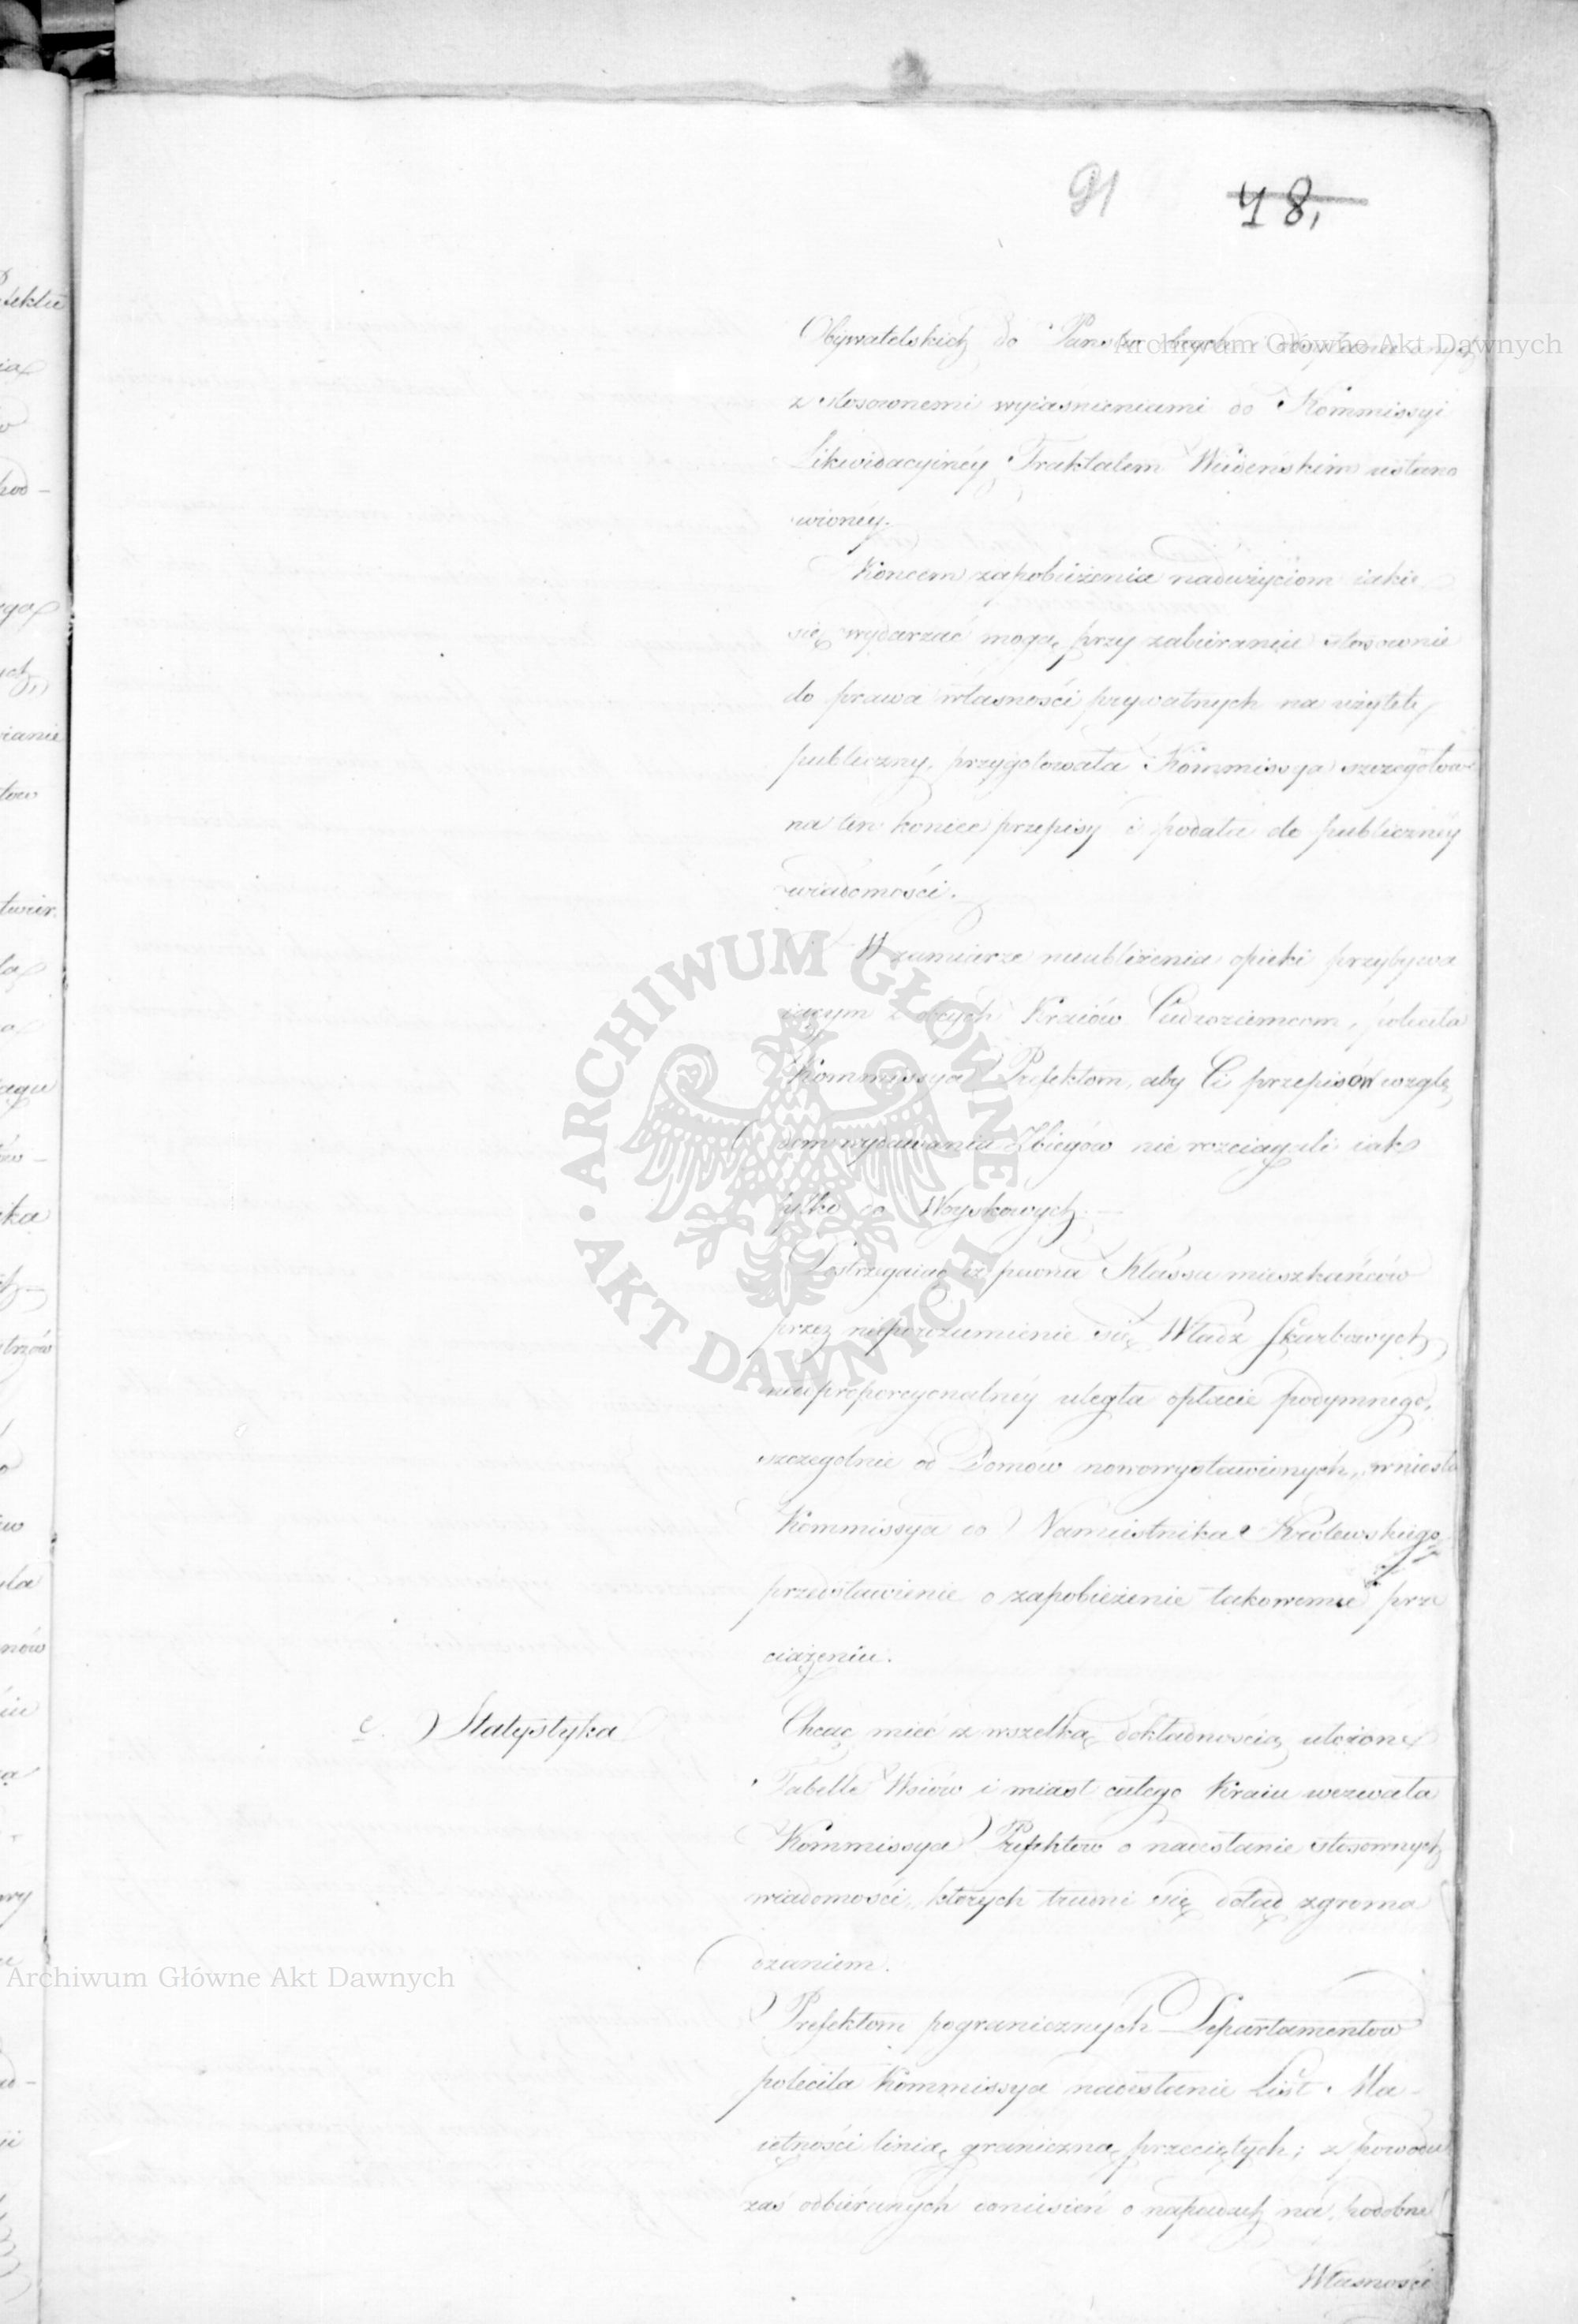 91 48,
Obywatelskich do Państw obcych
z stosownemi wyiaśnieniami do Kommissyi
Likwidacyinéy Traktatem Wiedeńskim ustano
wionéy.
Końcem zapobieżenia nadużyciom iakie
się wydarzać mogą, przy zabieraniu stosownie
do prawa własności prywatnych na użytek
publiczny, przygotowała Kommissya szczegółowe
na ten koniec przepisy i podała do publicznéy
wiadomości.
W zamiarze nieubliżenia opieki przybywa
iącym z obcych Kraiów Cudzoziemcom, poleciła
Kommissya Prefektom, aby Ci przepisów wzglę
dem wydawania Zbiegów nie rozciągali iak
tylko do Woyskowych. —
Dostrzegaiąc iż pewna Klassa mieszkańców
przez nieporozumienie się Władz Skarbowych
nieproporcyonalnéy uległa opłacie podymnégo,
szczególnie od Domów nowowystawionych, wniosła
Kommissya do Namiestnika Królewskiego
przedstawienie o zapobieżenie takowemu prze
ciążeniu.
c. Statystyka
Chcąc mieć z wszelką dokładnością ułożone
Tabelle Wsiów i miast całego Kraiu wezwała
Kommissya Prefektów o nadesłanie stosownych
wiadomości, których trudni się dotąd zgroma
dzaniem.
Prefektom pogranicznych Departamentów
poleciła Kommissya nadesłanie List Ma-
iętności linią graniczną przeciętych; z powodu
zaś odbieranych doniesień o napadach na podobne
Własności
Archiwum Główne Akt Dawnych
Archiwum Główne Akt Dawnych
ARCHIWUM GŁÓWNE
AKT DAWNYCH